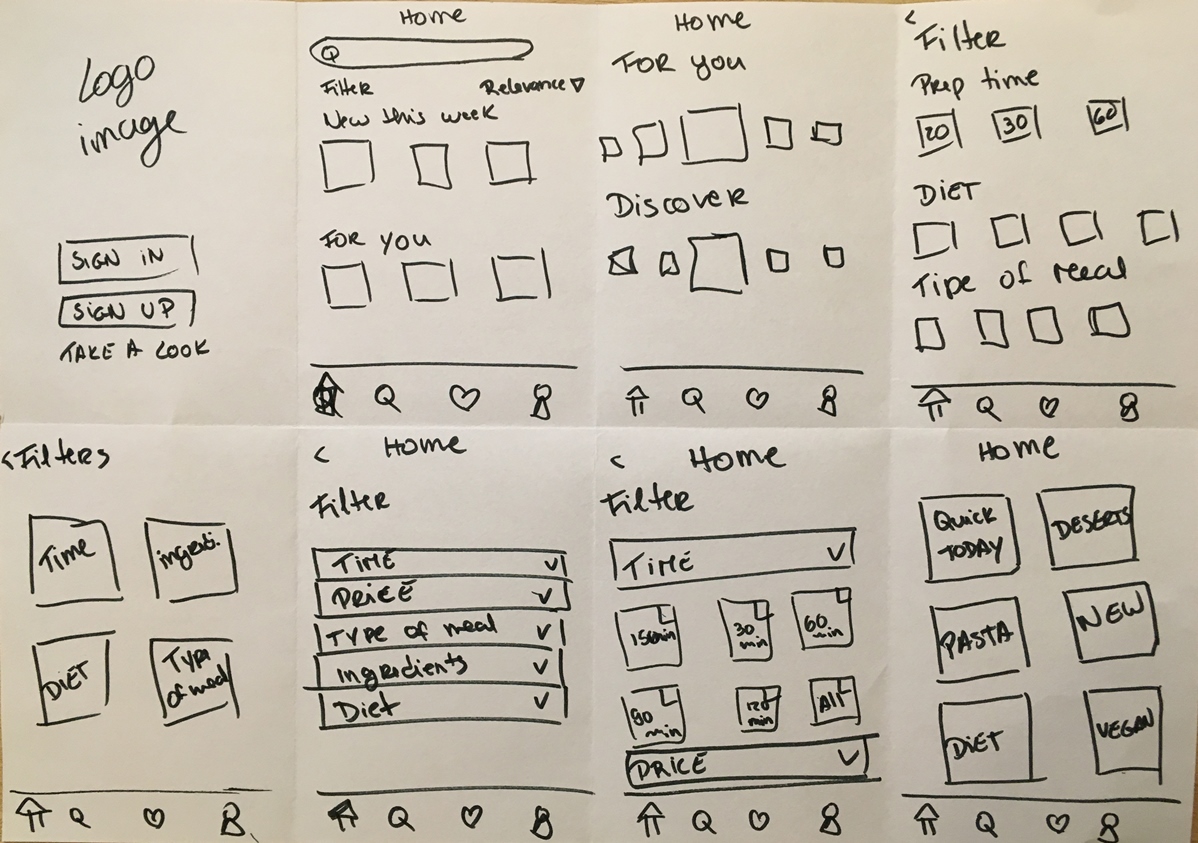 Logo
image
SIGN IN
SIGN UP
TAKE A LOOK
Home
Filter Relevance
New this week
FOR YOU
Home
FOR YOU
Discover
< Filter
Prep time
20 30 60
DIET
Tipe of meal
< Filters
Time ingredi.
DIET Type
of meal
< Home
Filter
TIME
PRICE
TYPE of meal
Ingredients
Diet
< Home
Filter
TIME
30
min
60
min
90
min
120
min
All
PRICE
Home
Quick
TODAY
DESERTS
PASTA NEW
DIET VEGAN